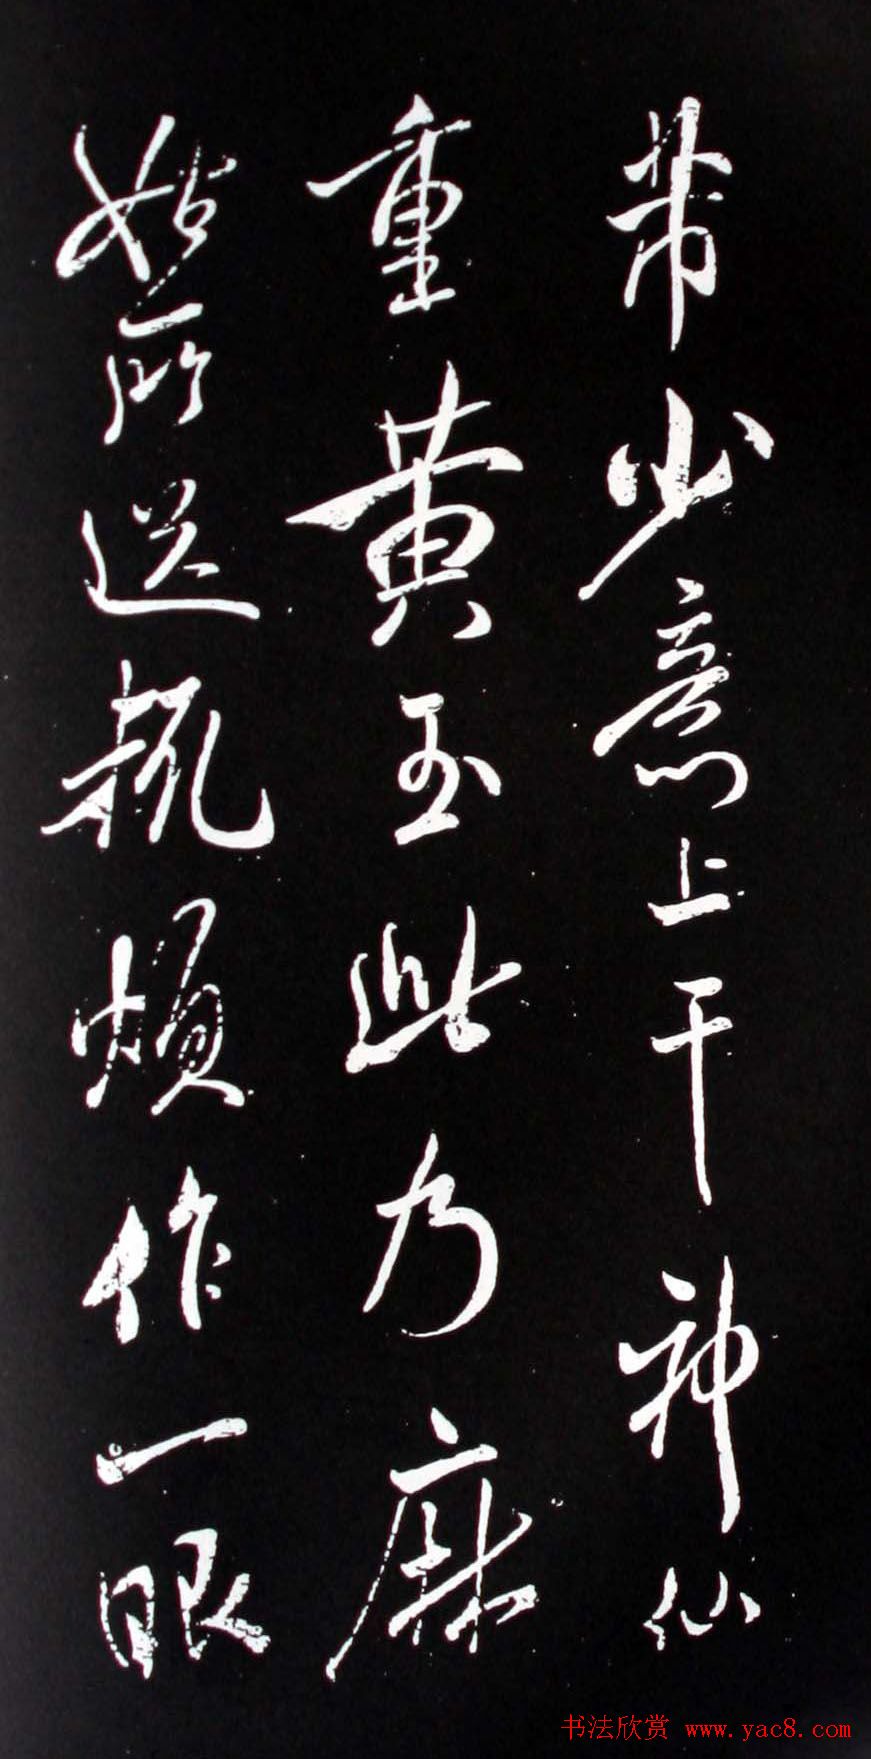 带少意上干神仙
重黄玉此乃麻
姑所送㧡烦作一眼
书法欣赏 www.yac8.com